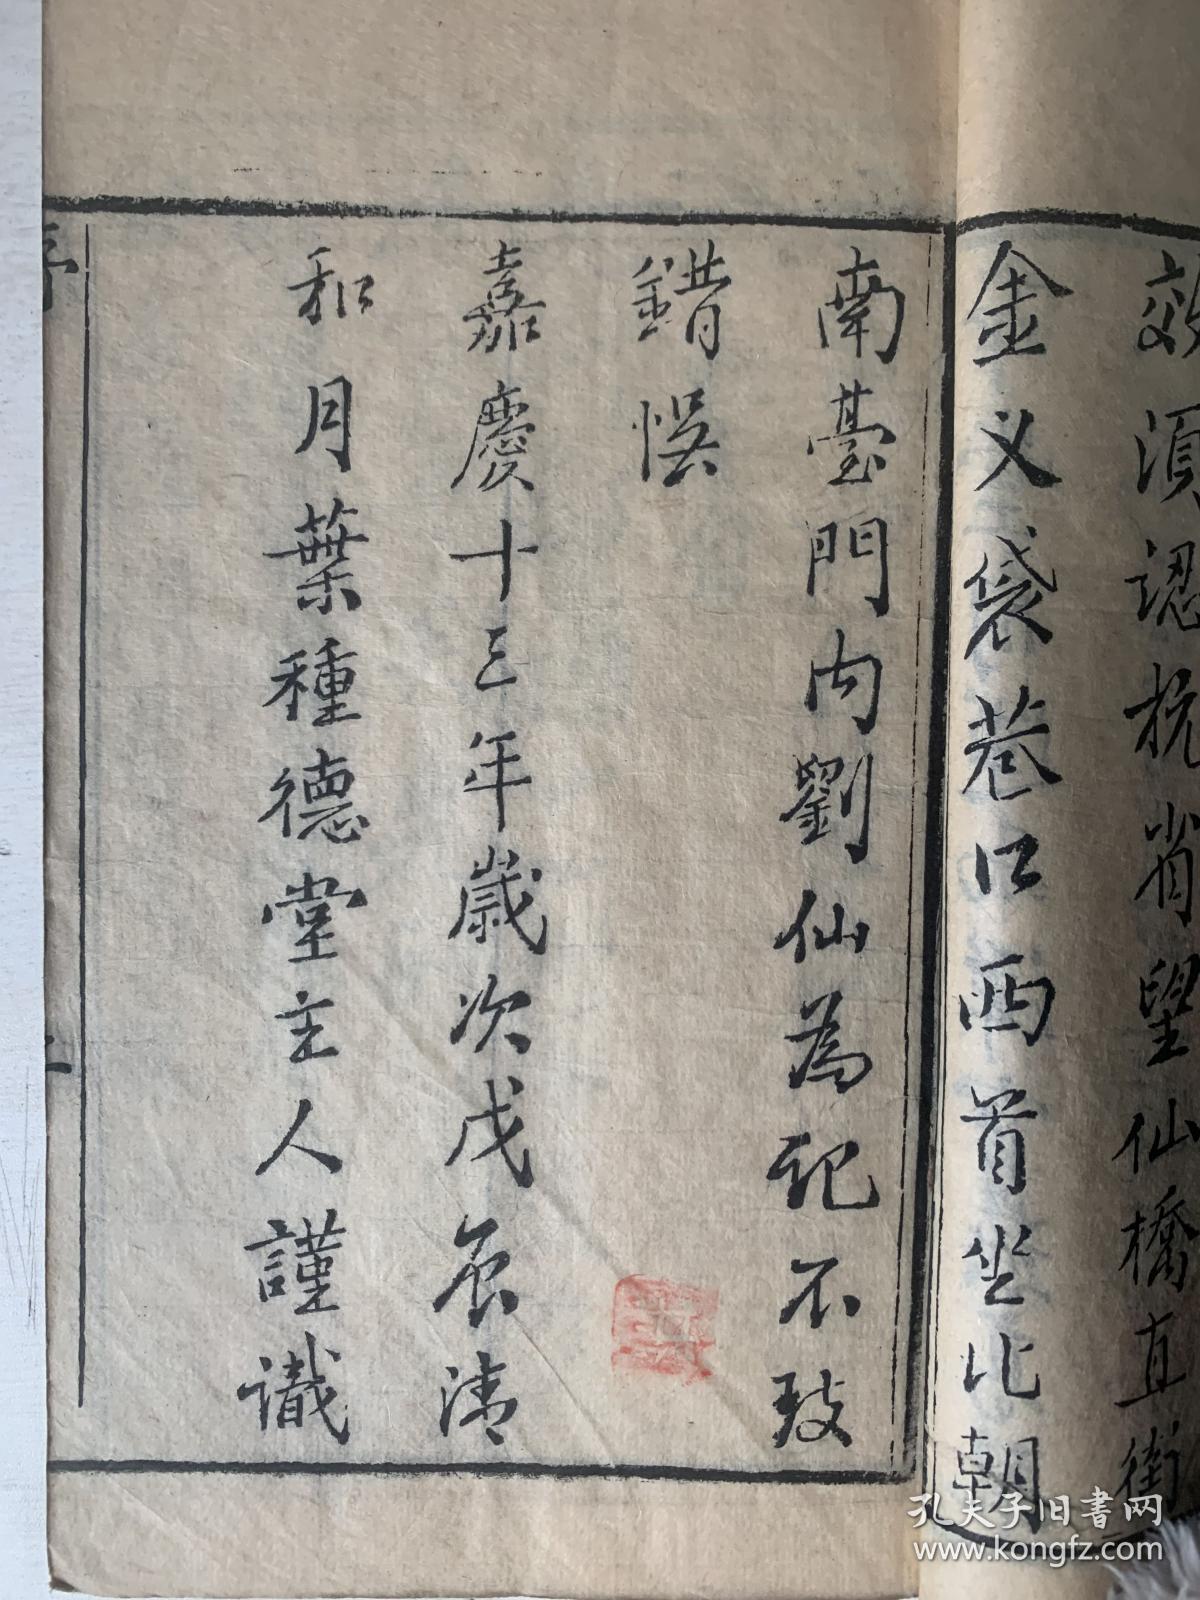 效須認杭省望仙橋直街
金义袋巷口西首坐北朝
南臺門内劉仙為記不致
錯悞
嘉慶十三年歲次戊辰清
和月葉種德堂主人謹識
序
孔夫子旧书网
www.kongfz.com